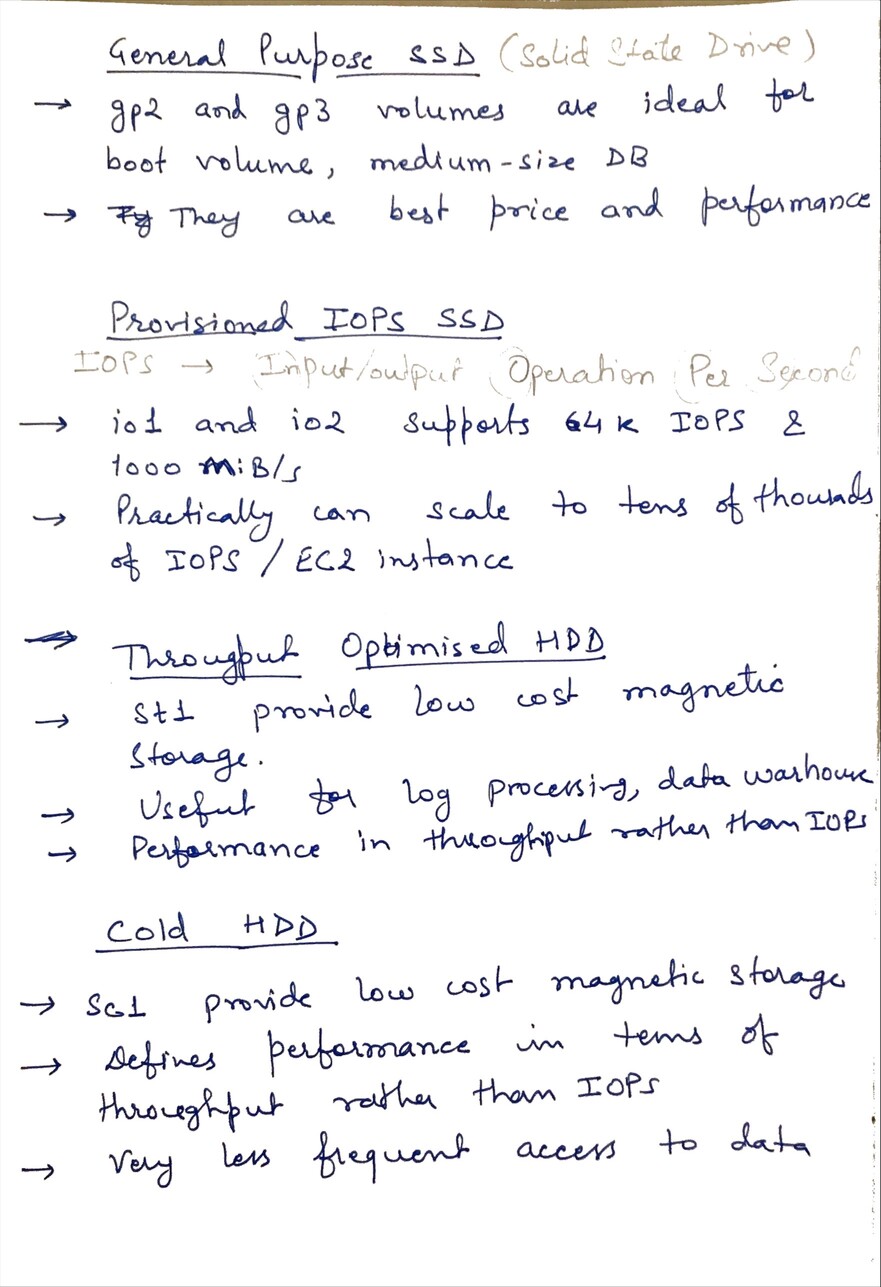 General Purpose SSD (Solid State Drive)
→ gp2 and gp3 volumes are ideal for
boot volume, medium-size DB
→ They are best price and performance
Provisioned IOPS SSD
IOPS → Input/output Operation Per Second
→ io1 and io2 supports 64K IOPS &
1000 MiB/s
→ Practically can scale to tens of thousads
of IOPS / EC2 instance
→ Througput Optimised HDD
→ St1 provide low cost magnetic
Storage.
→ Useful for log processing, data warhouse
→ Performance in throughput rather than IOPS
Cold HDD
→ SC1 provide low cost magnetic storage
→ Defines performance in tems of
throughput rather than IOPS
→ Very less frequent access to data